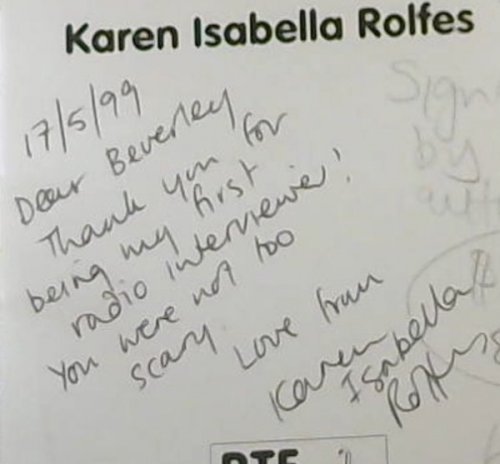 Karen Isabella Rolfes
17/5/99
Dear Beverley
Thank you for
being my first
radio interviewer!
You were not too
scary
Love from
Karen
Isabella
Rolfes
Sign
by